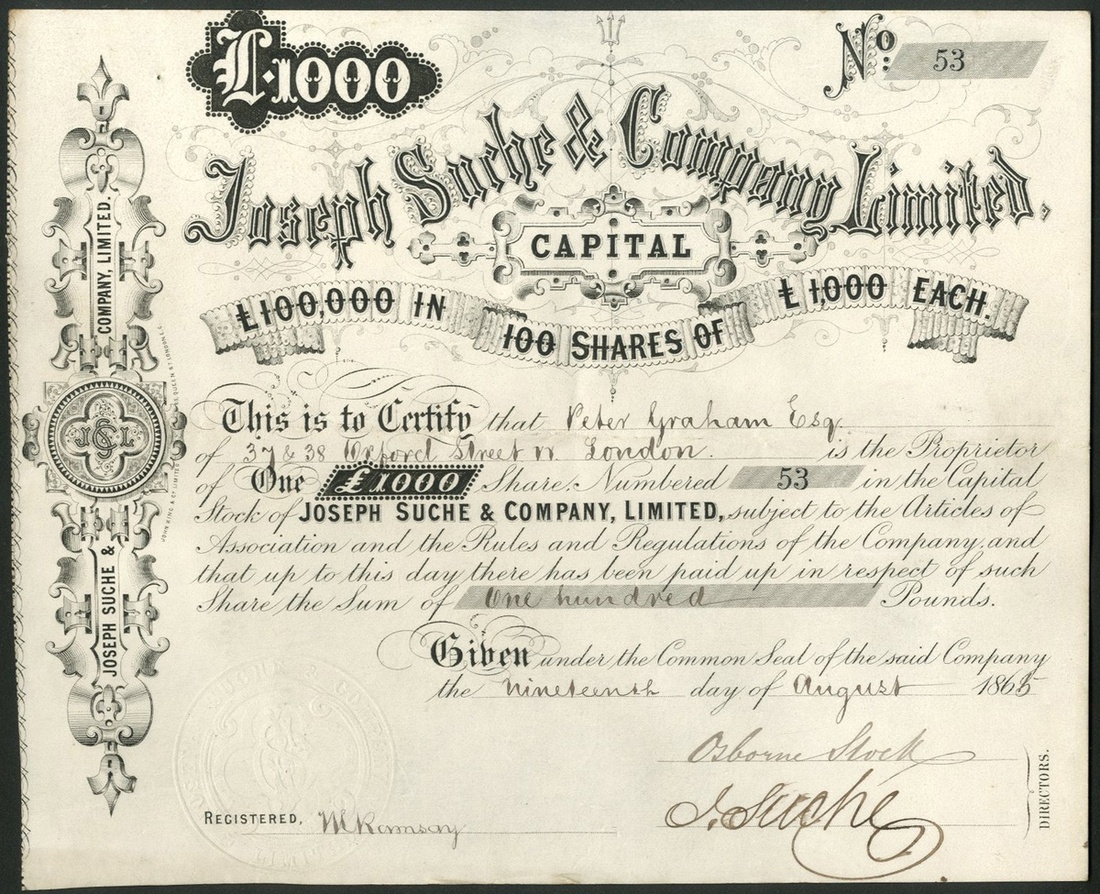 £1000
No: 53
Joseph Suche & Company Limited.
CAPITAL
£100,000 IN 100 SHARES OF £1,000 EACH.
This is to Certify that Peter Graham Esq.
of 37 & 38 Oxford Street W. London. is the Proprietor
of One £1000 Share Numbered 53 in the Capital
Stock of JOSEPH SUCHE & COMPANY, LIMITED, subject to the Articles of
Association and the Rules and Regulations of the Company, and
that up to this day there has been paid up in respect of such
Share the Sum of One hundred Pounds.
Given under the Common Seal of the said Company
the nineteenth day of August 1865
Osborne Stock
J. Suche
DIRECTORS.
REGISTERED, M Ramsay
JOSEPH SUCHE & COMPANY, LIMITED.
J & C L